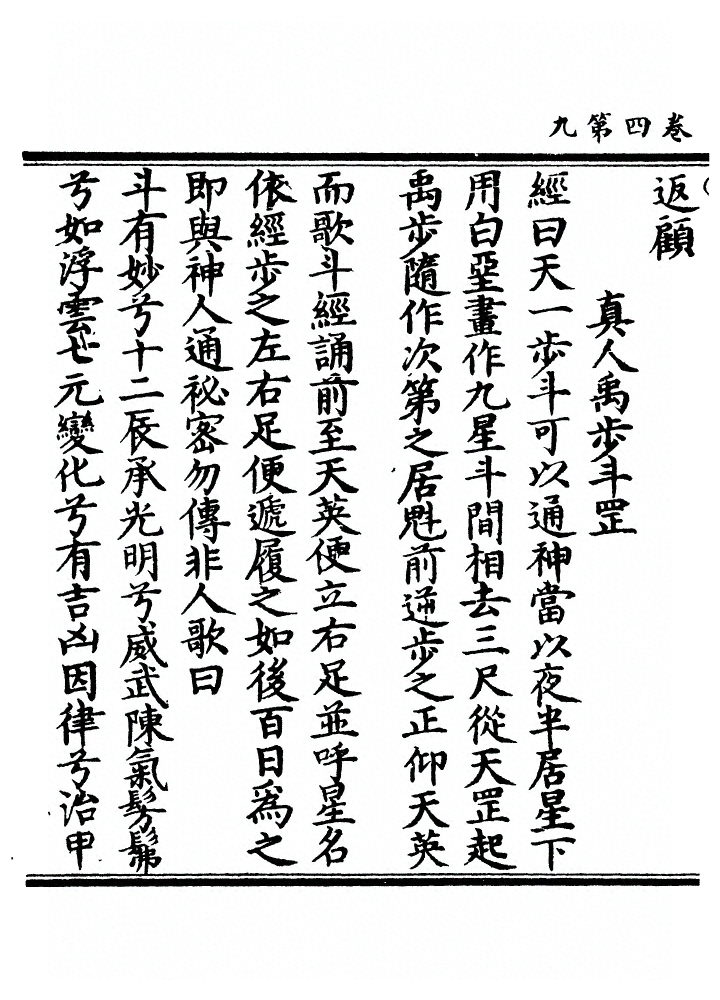 卷四第九
返顧
真人禹步斗罡
經曰天一步斗可以通神當以夜半居星下
用白堊畫作九星斗間相去三尺從天罡起
禹步隨作次第之居魁前逆步之正仰天英
而歌斗經誦前至天英便立右足並呼星名
依經步之左右足便遞履之如後百日為之
即與神人通祕密勿傳非人歌曰
斗有妙兮十二辰承光明兮威武陳氣髣髴
兮如浮雲七元變化兮有吉凶因律兮治甲